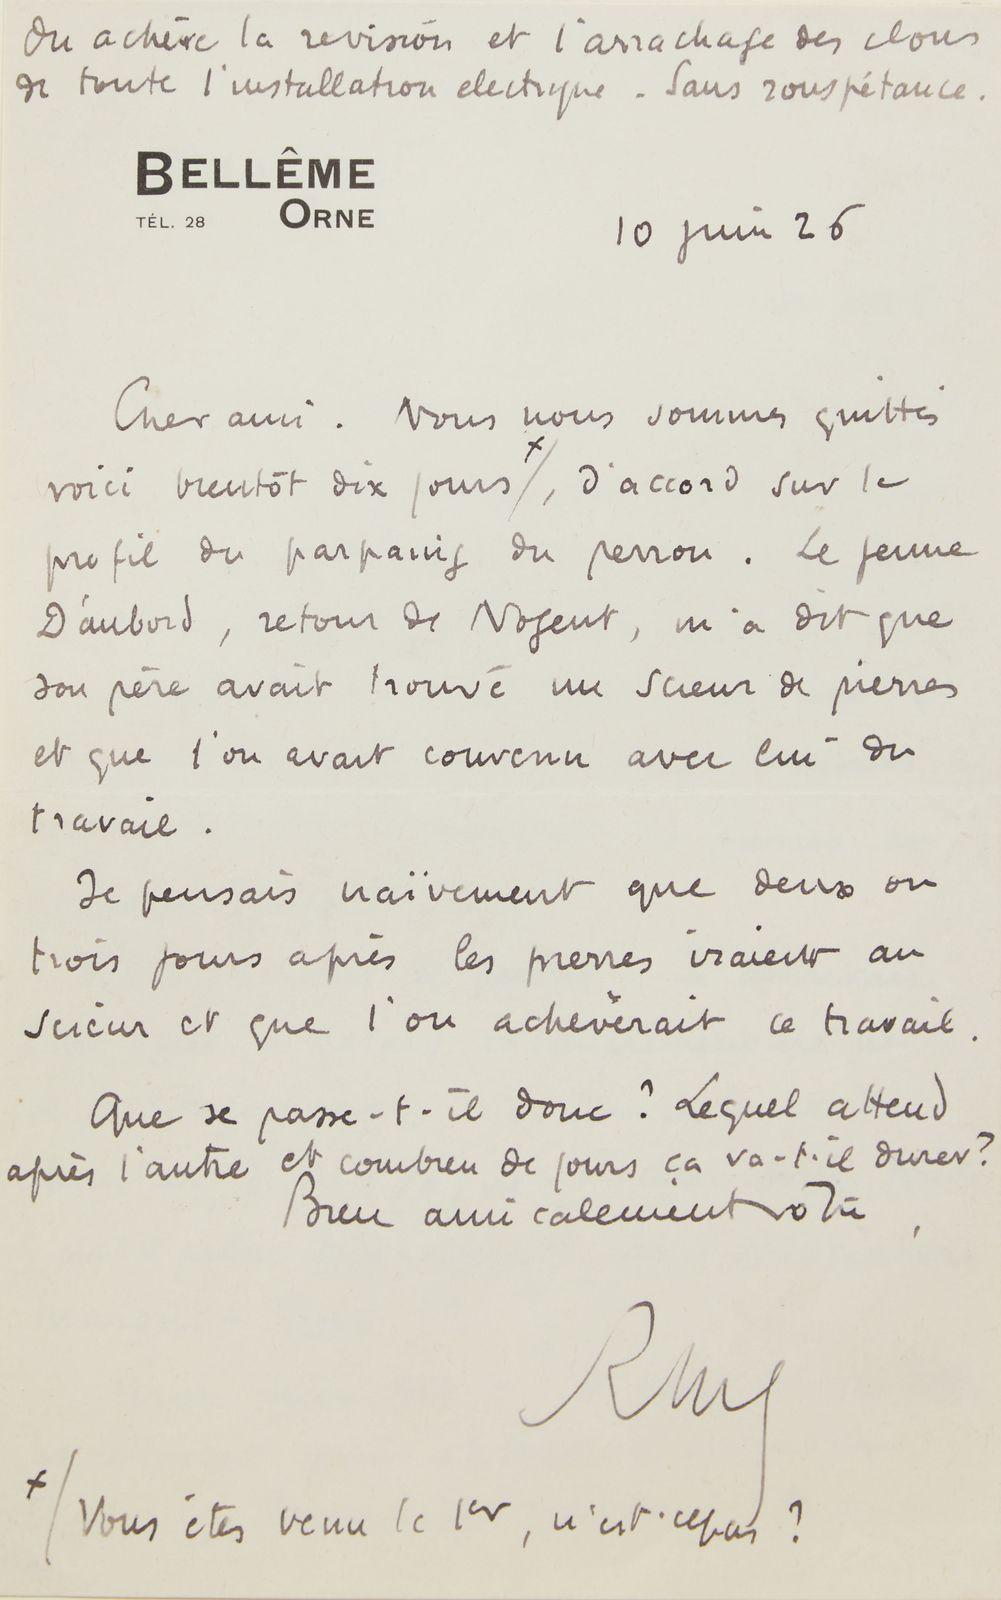 On achève la revision et l'arrachage des clous
de toute l'installation electrique - Sans rouspétance.
BELLÊME
TÉL. 28 ORNE
10 juin 26
Cher ami. Nous nous sommes quittés
voici bientôt dix jours x/, d'accord sur le
profil du parpaing du perron. Le jeune
Daubord, retour de Nogent, m'a dit que
son père avait trouvé un scieur de pierres
et que l'on avait convenu avec lui du
travail.
Je pensais naïvement que deux ou
trois jours après les pierres iraient au
scieur et que l'on achèverait ce travail.
Que se passe-t-il donc ? Lequel attend
après l'autre et combien de jours ça va-t-il durer ?
Bien amicalement votre,
x/ Vous êtes venu le 1er, n'est-ce pas ?